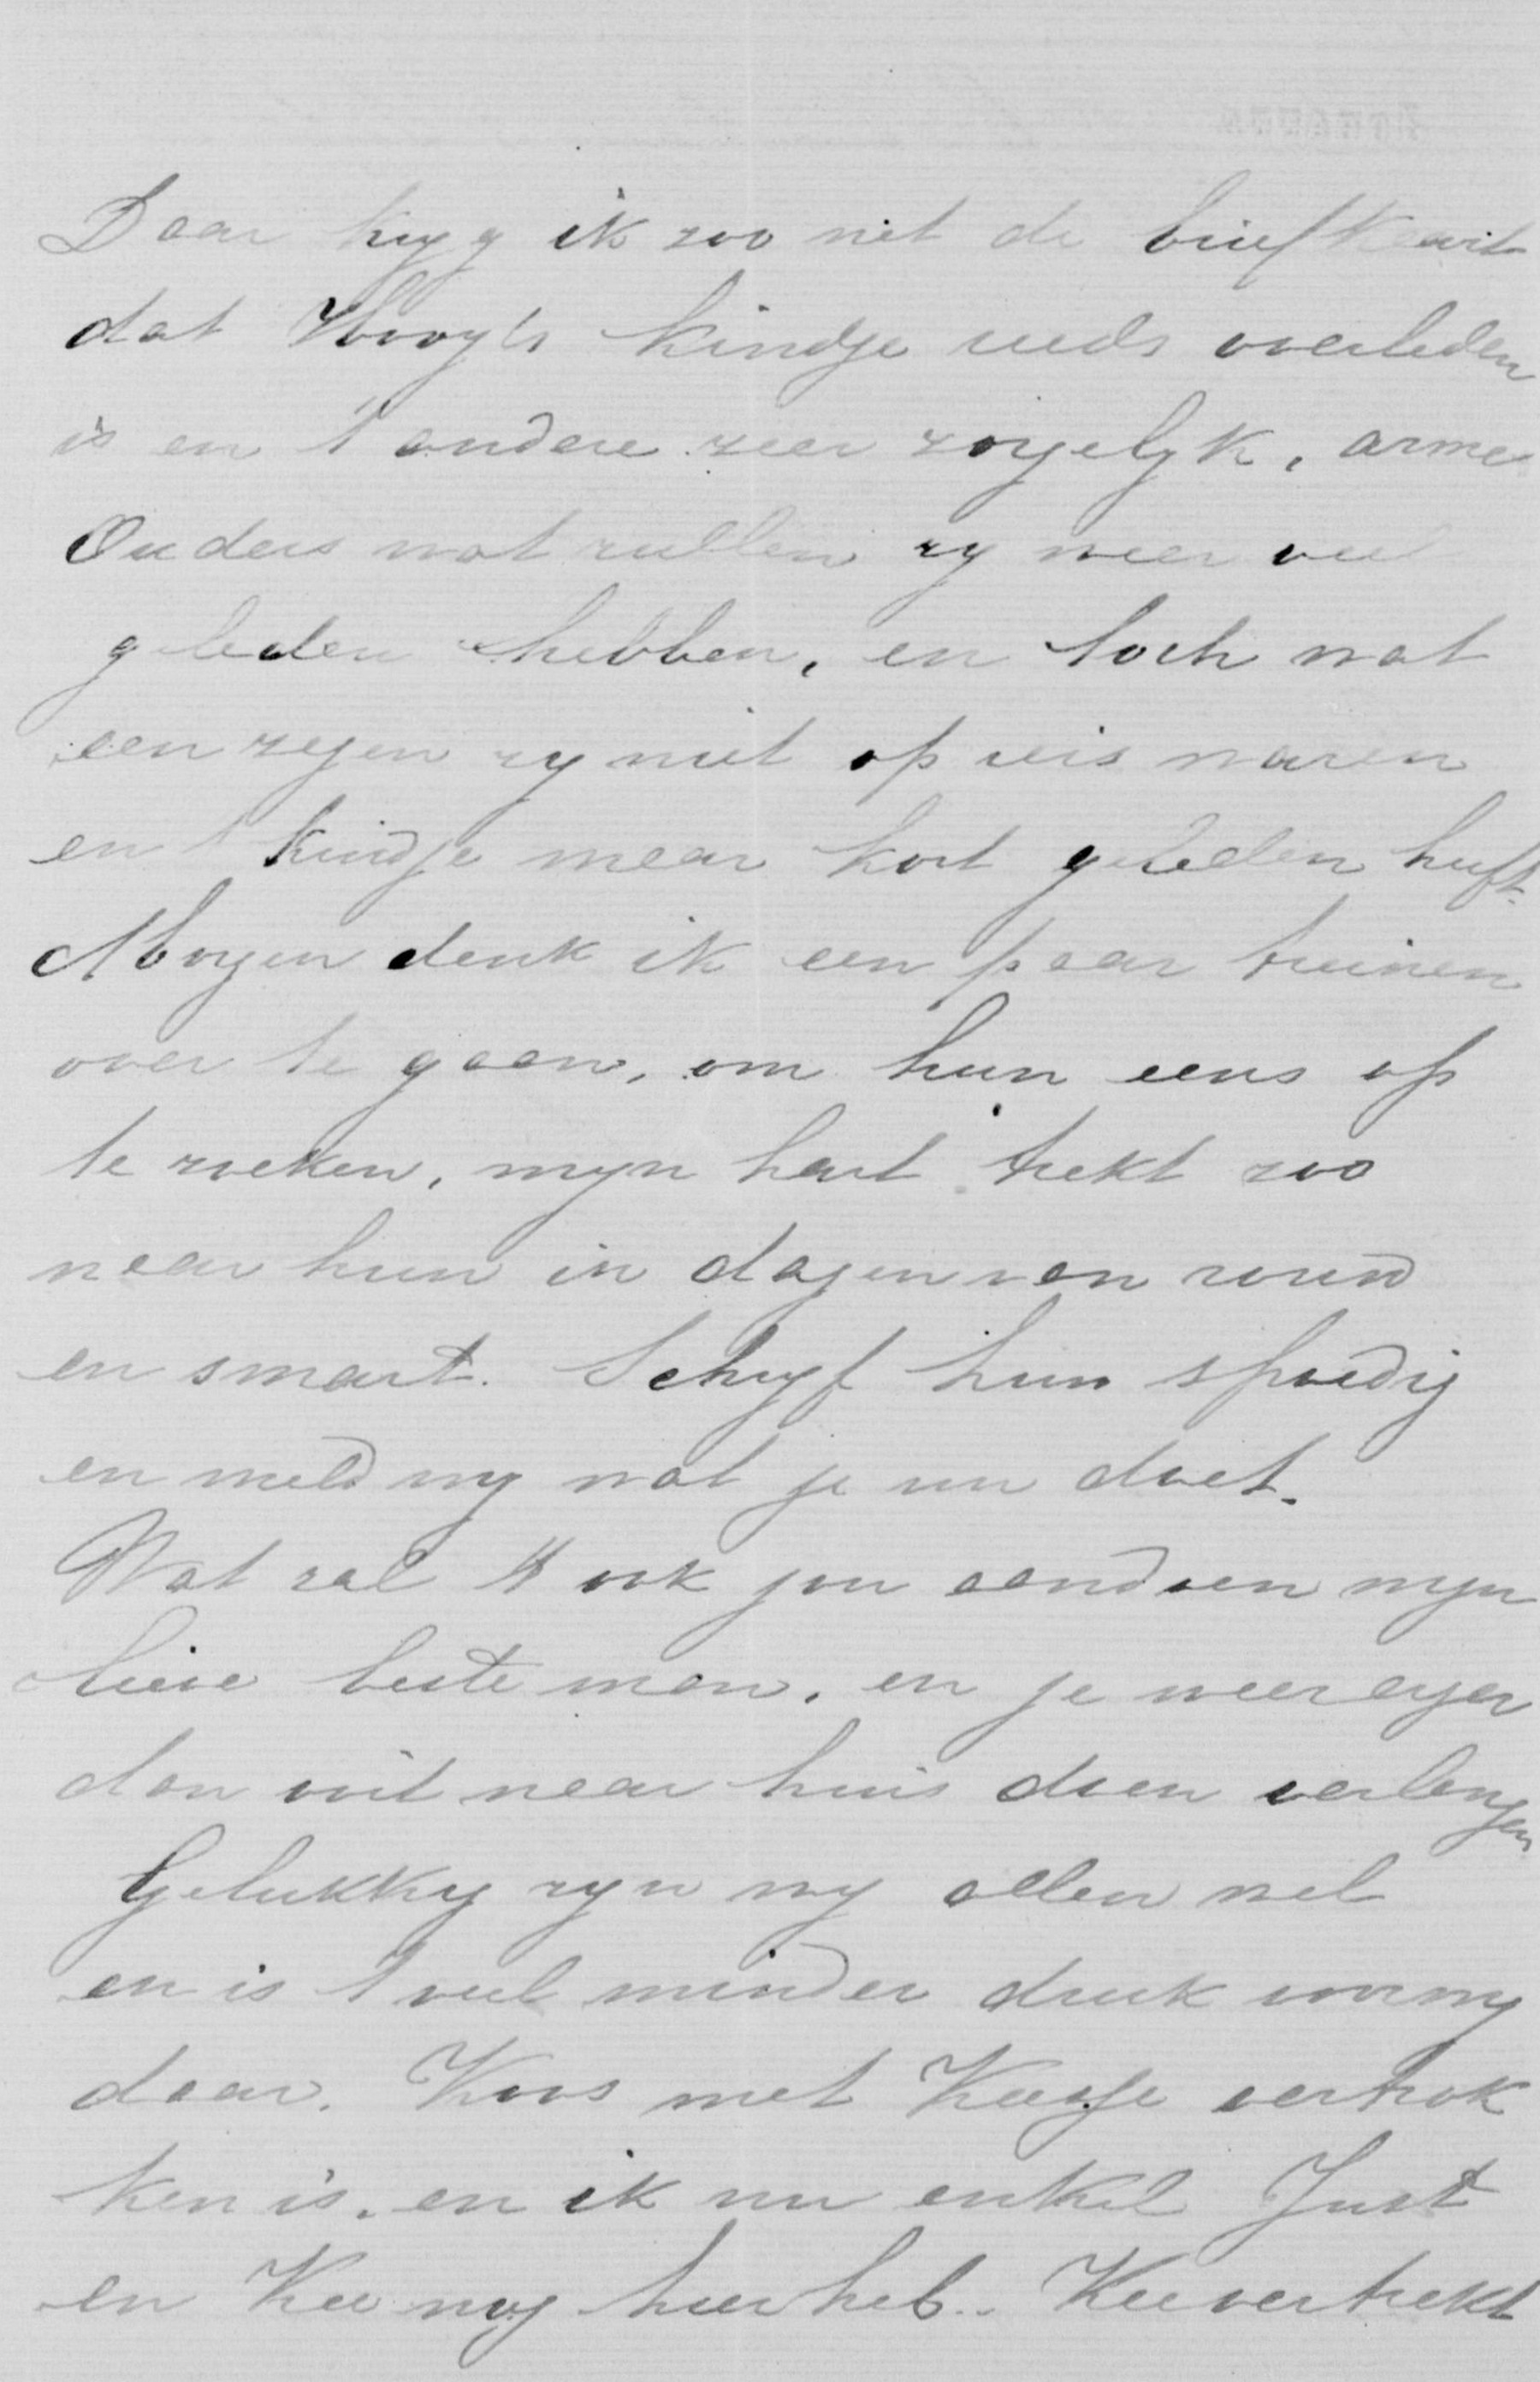 Daar krijg ik zoo net de briefkaart
dat Roosy's kindje reeds overleden
is en 't andere zeer zorgelijk, arme
Ouders wat zullen zij weer veel
geleden hebben, en toch wat
een zegen zij niet op reis waren
en 't kindje maar kort geleden heeft.
Morgen denk ik een paar treinen
over te gaan, om hun eens op
te zoeken, mijn hart trekt zoo
naar hun in dagen van rouw
en smart. Schrijf hun spoedig
en meld mij wat je nu doet.
Wat zal 't ook jou aandoen mijn
lieve beste man, en je weer erger
dan ooit naar huis doen verlangen
Gelukkig zijn wij allen wel
en is 't veel minder druk voor mij
daar. Koos met Keesje vertrok
ken is, en ik nu enkel Just
en Kee nog hier heb. Kee vertrekt